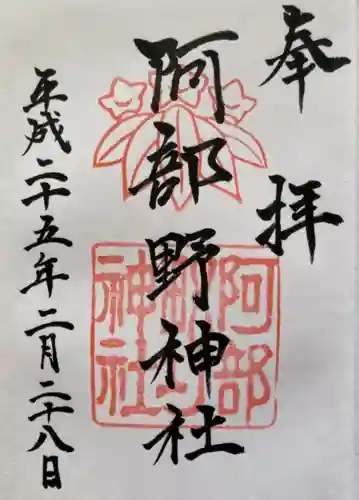 奉拝
阿部野神社
平成二十五年二月二十八日
阿部
野
神社